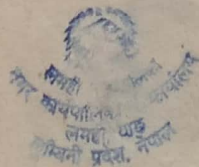 लमही
नगर कार्यपालिकाको कार्यालय
लमही, दाङ
लुम्बिनी प्रदेश, नेपाल